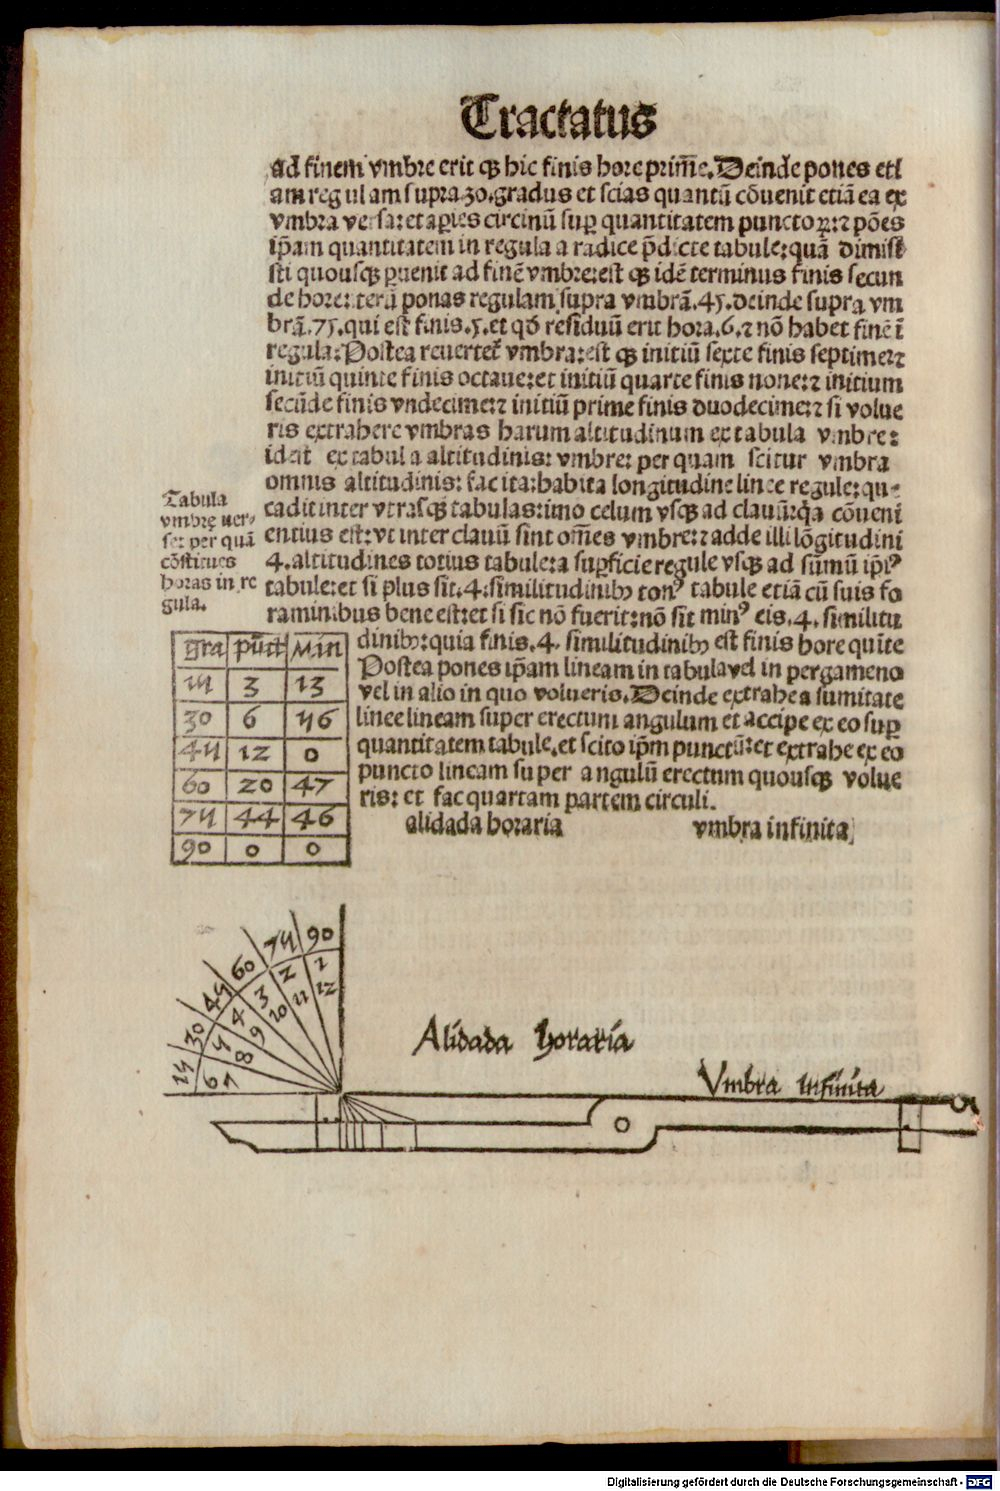 Tractatus
ad finem vmbre erit qȝ hic finis hore prim̄e. Deinde pones eti
am regulam supra.30.gradus et scias quantū cōuenit etiā ea ex
vmbra versa: et aꝑies circinū suꝑ quantitatem punctoꝝ: ⁊ pōes
ip̄am quantitatem in regula a radice p̄dicte tabule: quā dimisi
sti quousqȝ ꝑuenit ad finē vmbre: est qȝ idē terminus finis secun
de hore: terū ponas regulam supra vmbrā.45.deinde supra vm
brā.75.qui est finis.5.et qd̄ residuū erit hora.6.⁊ nō habet finē ī
regula: Postea reuertet᷑ vmbra: est qȝ initiū sexte finis septime: ⁊
initiū quinte finis octaue: et initiū quarte finis none: ⁊ initium
secūde finis vndecime: ⁊ initiū prime finis duodecime: ⁊ si volue
ris extrahere vmbras harum altitudinum ex tabula vmbre:
id est ex tabula altitudinis: vmbre: per quam scitur vmbra
omnis altitudinis: fac ita: habita longitudine linee regule: qu-
cadit inter vtrasqȝ tabulas: imo celum vsqȝ ad clauū: q̄a cōueni
entius est: vt inter clauū sint om̄es vmbre: ⁊ adde illi lōgitudini
4.altitudines totius tabule: a suꝑficie regule vsqȝ ad sūmū ip̄iꝰ
tabule: et si plus sit.4.similitudinibꝫ tonꝰ tabule etiā cū suis fo
raminibus bene est: et si sic nō fuerit: nō sit minꝰ eis.4.similitu
dinibꝫ: quia finis.4.similitudinibꝫ est finis hore quīte
Postea pones ip̄am lineam in tabula vel in pergameno
vel in alio in quo volueris. Deinde extrahe a sumitate
linee lineam super erectum angulum et accipe ex eo suꝑ
quantitatem tabule.et scito ip̄m punctū: et extrahe ex eo
puncto lineam super angulū erectum quousqȝ volue
ris: et fac quartam partem circuli.
Tabula
vmbrę uer-
se: per quā
cōstitues
horas in re
gula.
gra pūct Min
15 3 13
30 6 56
45 12 0
60 20 47
75 44 46
90 0 0
alidada horaria vmbra infinita
90
75
60
45
30
15
1 12
2 11
3 10
4 9
5 8
6 7
Alidada horaria
Vmbra infinita
Digitalisierung gefördert durch die Deutsche Forschungsgemeinschaft - DFG